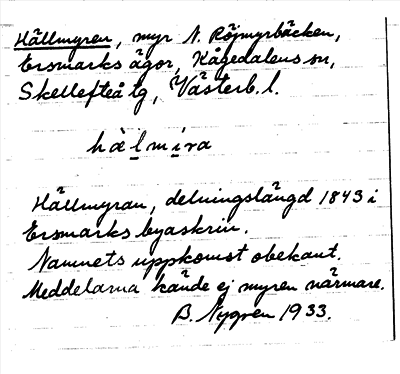 Hällmyren, myr N. Röjmyrbäcken,
Ersmarks ägor, Kågedalens sn,
Skellefteå tg, Västerb. l.
hälmira
Hällmyran, delningslängd 1843 i
Ersmarks byaskrin.
Namnets uppkomst obekant.
Meddelarna kände ej myren närmare.
B. Nygren 1933.